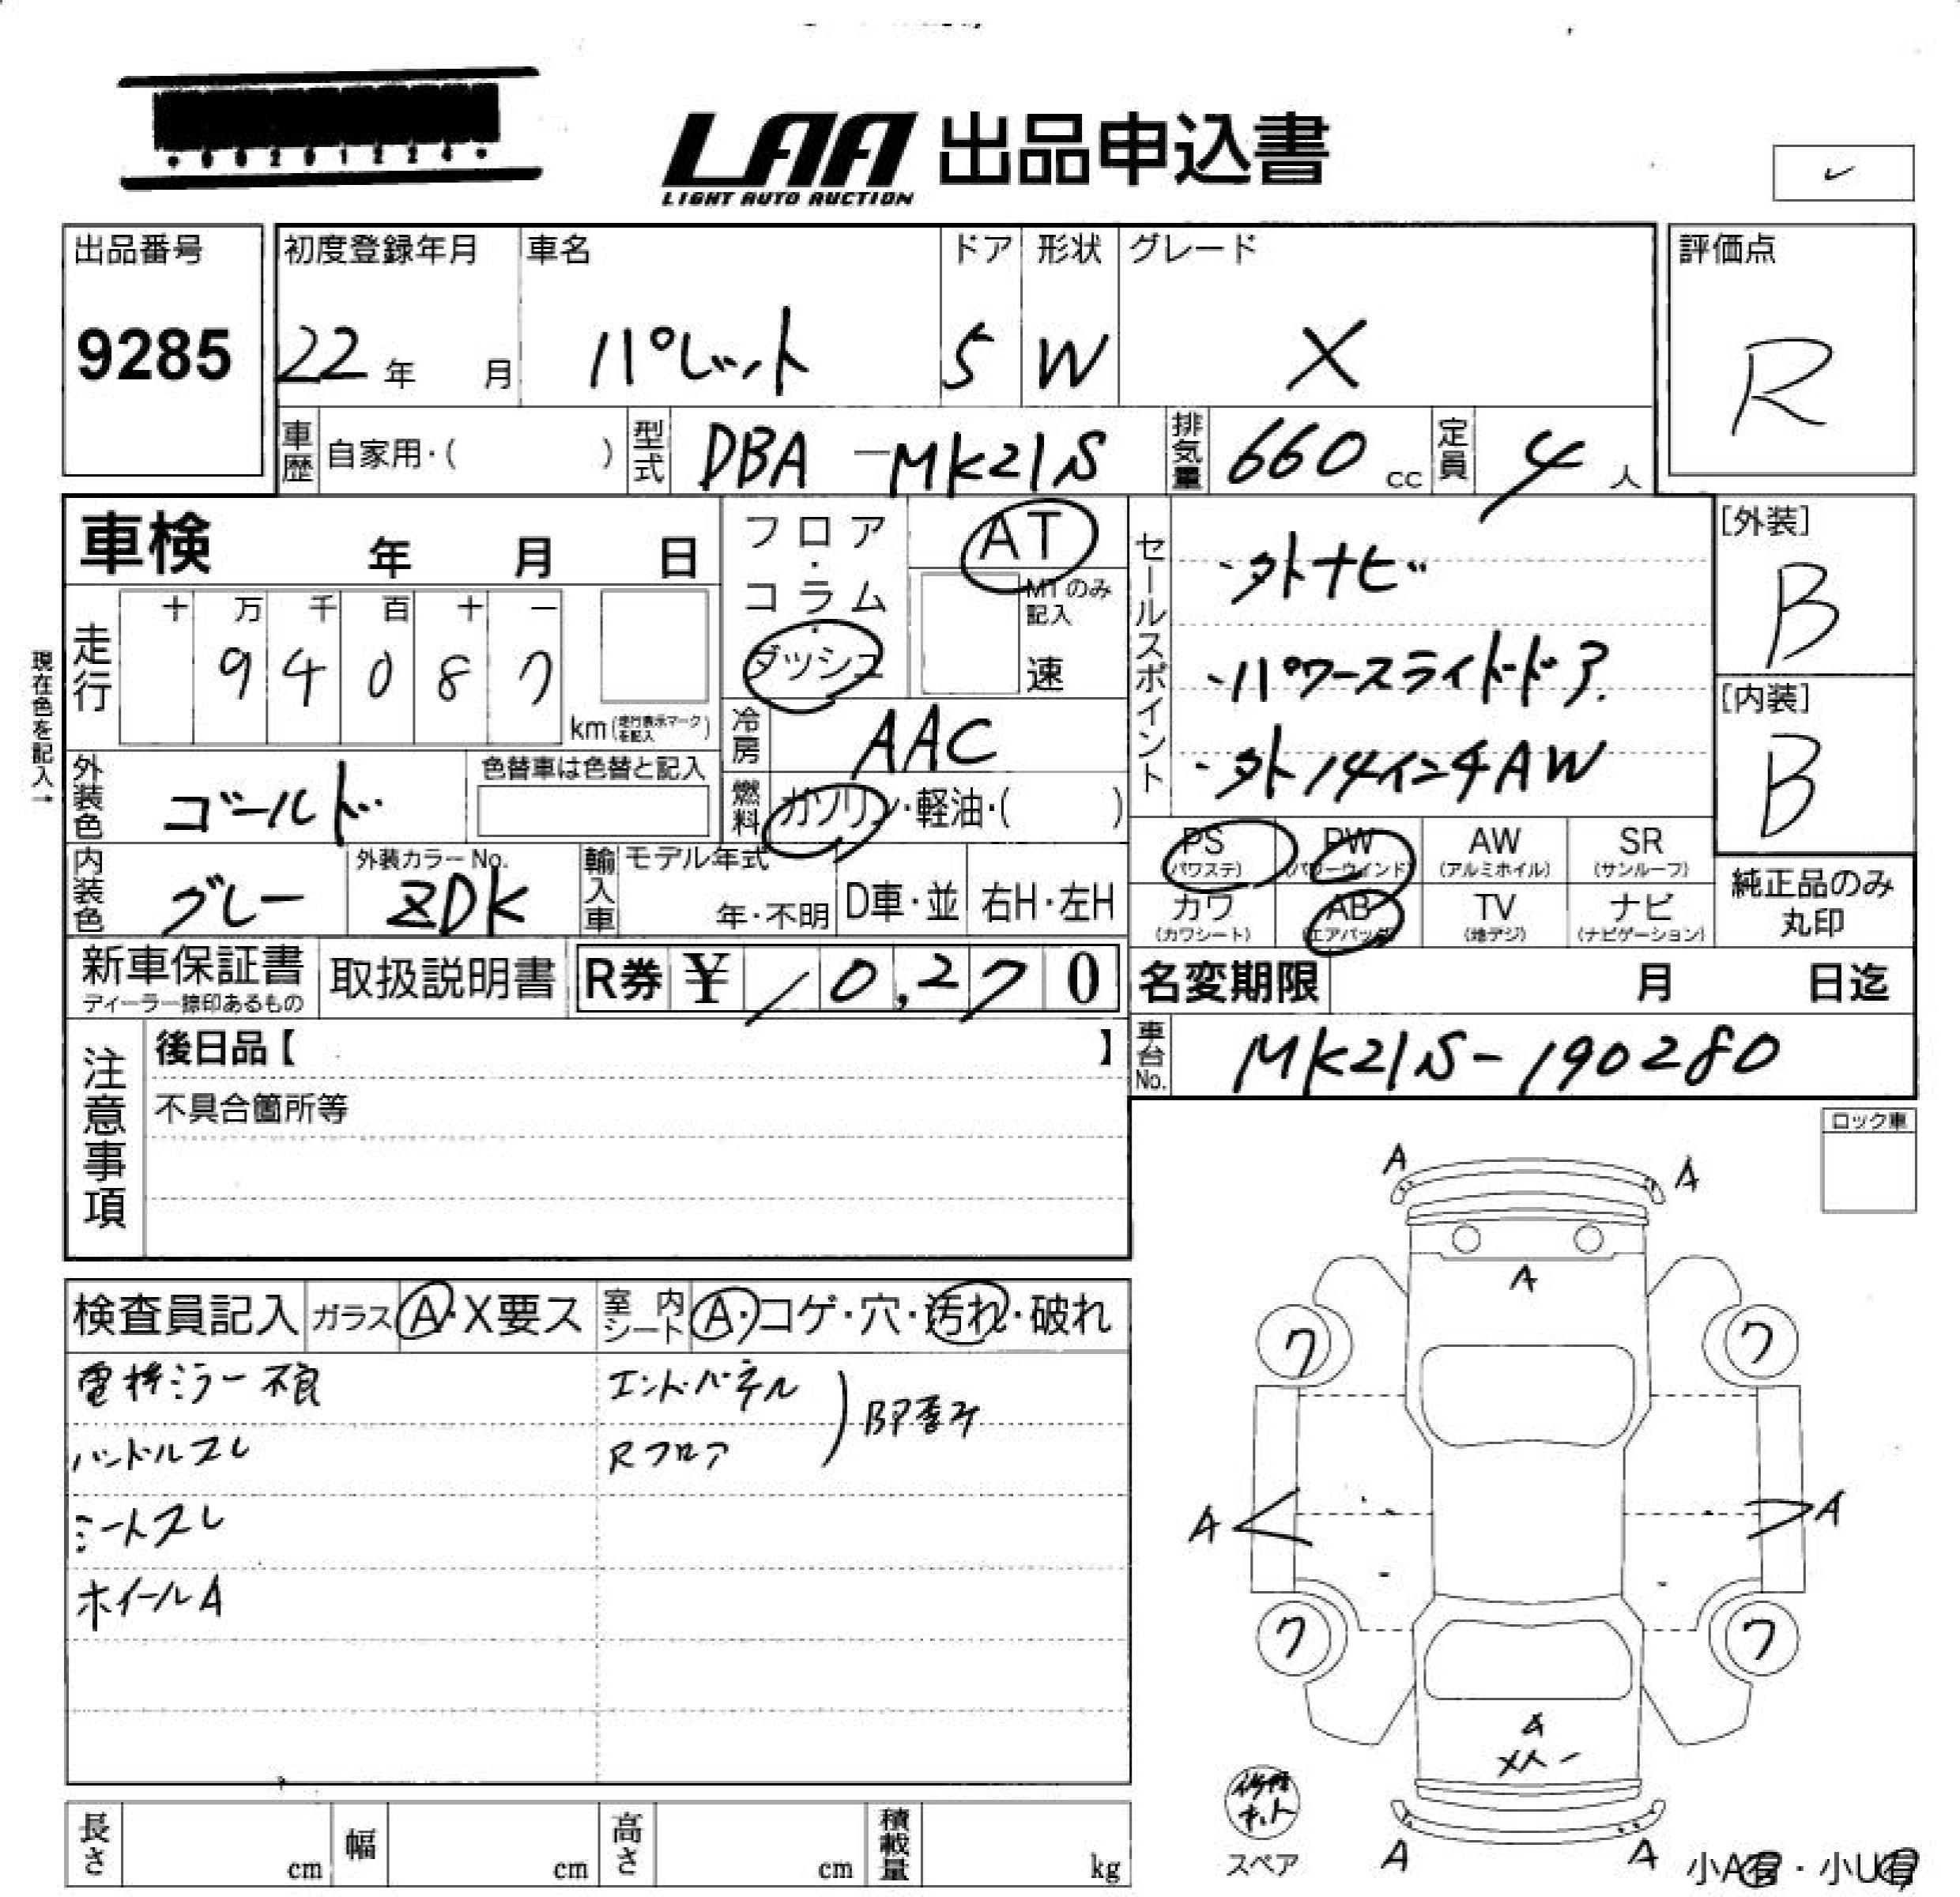 ・00201224・
LAA 出品申込書
LIGHT AUTO AUCTION
出品番号 初度登録年月 車名 ドア 形状 グレード 評価点
9285 22年 月 パレット 5 W X R
車歴 自家用・( ) 型式 DBA-MK21S 排気量 660 cc 定員 4 人
車検 年 月 日
フロア・コラム・ダッシュ
AT
MTのみ記入
速
セールスポイント
・外ナビ
・パワースライドドア
・外14インチAW
[外装]
B
[内装]
B
現在色を記入→
走行 十 万 千 百 十 一
9 4 0 8 7
km(走行表示マークを記入)
冷房 AAC
燃料 ガソリン・軽油・( )
外装色 ゴールド 色替車は色替と記入
内装色 グレー 外装カラーNo. ZDK 輸入車 モデル年式 年・不明 D車・並 右H・左H
PS (パワステ) PW (パワーウインド) AW (アルミホイル) SR (サンルーフ)
カワ (カワシート) AB (エアバッグ) TV (地デジ) ナビ (ナビゲーション)
純正品のみ丸印
新車保証書 ディーラー捺印あるもの 取扱説明書 R券 ¥ 10,270
名変期限 月 日迄
車台No. MK21S-190280
注意事項
後日品【 】
不具合箇所等
ロック車
検査員記入 ガラス A・X要ス 室内シート A・コゲ・穴・汚れ・破れ
電格ミラー不良 エンドパネル
ハンドルスレ Rフロア
シートスレ
ホイールA
A A
A
ワ ワ
A A
ワ ワ
A
A A
修理キット
スペア
小A有・小U有
長さ cm 幅 cm 高さ cm 積載量 kg